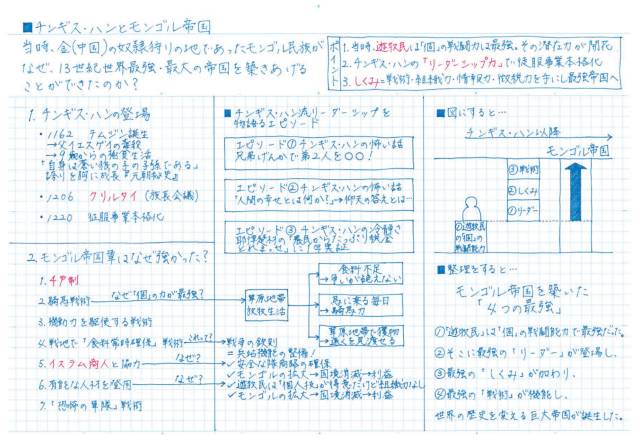 ■チンギス・ハンとモンゴル帝国
当時、金(中国)の奴隷狩りの地であったモンゴル民族が
なぜ、13世紀世界最強・最大の帝国を築きあげる
ことができたのか?
ポイント
1. 当時、遊牧民は「個」の戦闘力は最強。その潜在力が開花
2. チンギス・ハンの「リーダーシップ力」で征服事業本格化
3. しくみ=戦術・組織力・情報力・徴税力を手にし最強帝国へ
1. チンギス・ハンの登場
・1162 テムジン誕生
→父イエスゲイの毒殺
→9歳からの極貧生活
『自身は蒼い狼の子の子孫である』
誇りを胸に成長『元朝秘史』
・1206 クリルタイ(族長会議)
・1220 征服事業本格化
■チンギス・ハン流リーダーシップを
物語るエピソード
エピソード① チンギス・ハンの怖い話
兄弟げんかで第2人を〇〇!
エピソード② チンギス・ハンの怖い話
「人間の幸せとは何か?」→仰天の答えとは…
エピソード③ チンギス・ハンの冷静さ
耶律楚材の「農民からたっぷり税金
とれまっせ」に1年実証
■図にすると…
チンギス・ハン以降
モンゴル帝国
③戦術
②しくみ
①リーダー
①遊牧民
の「個」の
戦闘能力
2. モンゴル帝国軍はなぜ強かった?
1. 千戸制
2. 騎馬戦術
なぜ「個」の力が最強?
3. 機動力を駆使する戦術
4. 戦地で「食料等時確保」戦術
これって?
5. イスラム商人と協力
なぜ?
6. 有能な人材を登用
なぜ?
7. 「恐怖の軍隊」戦術
草原地帯
放牧生活
食料不足
→争いが絶えない
馬に乗る毎日
→騎馬力
草原地帯で獲物
→遠くを見渡せる
戦争の鉄則
=兵站機能の整備!
✓安全な隊商路の確保
✓モンゴルの拡大→国境消滅→利益
✓遊牧民は「個人技」が得意だけど組織力なし
✓モンゴルの拡大→国境消滅→利益
■整理をすると…
モンゴル帝国を築いた
「4つの最強」
①“遊牧民”は「個」の戦闘能力で最強だった。
②そこに最強の「リーダー」が登場し、
③最強の「しくみ」が加わり、
④最強の「戦術」が機能し、
世界の歴史を変える巨大帝国が誕生した。